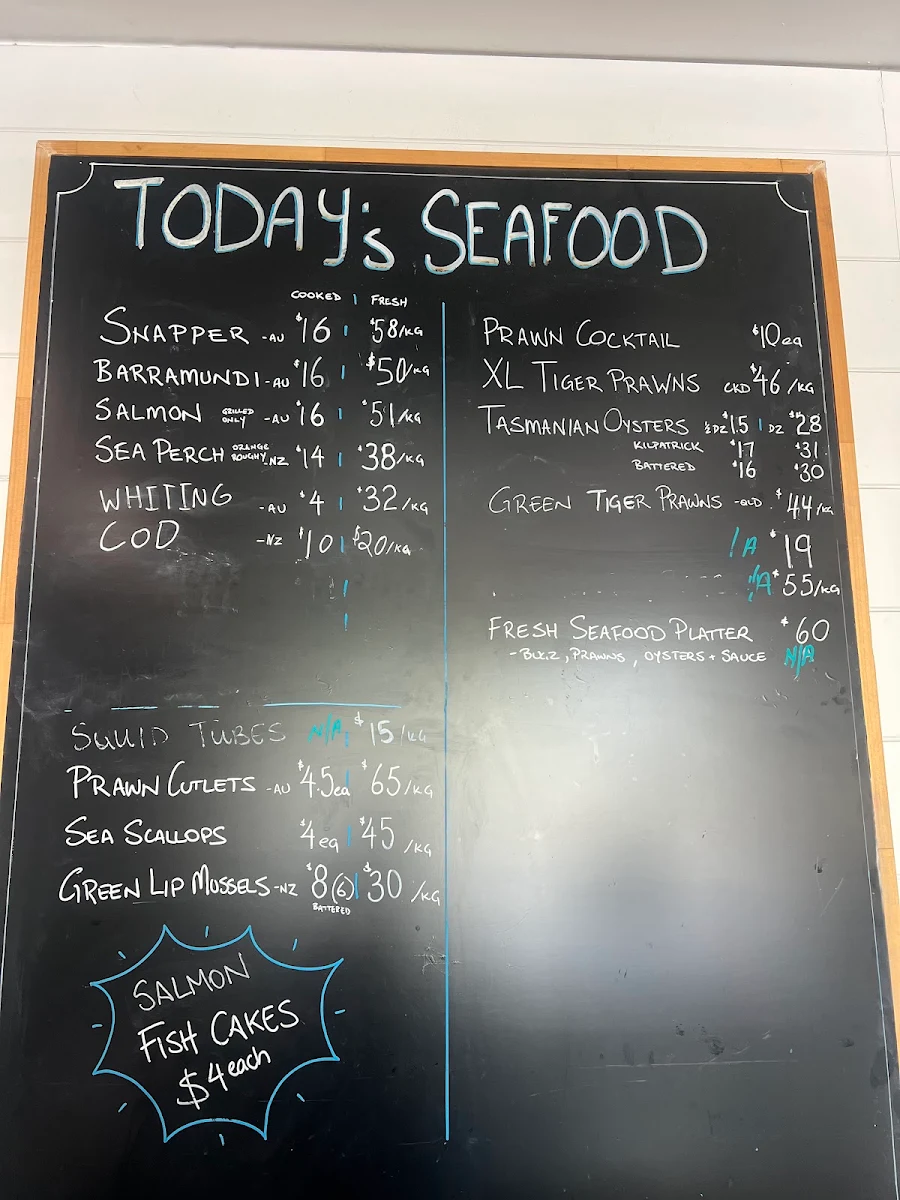 TODAY'S SEAFOOD
COOKED | FRESH
SNAPPER -AU $16 | $58/KG
BARRAMUNDI -AU $16 | $50/KG
SALMON GRILLED ONLY -AU $16 | $51/KG
SEA PERCH ORANGE ROUGHY -NZ $14 | $38/KG
WHITING -AU $4 | $32/KG
COD -NZ $10 | $20/KG
SQUID TUBES N/A | $15/KG
PRAWN CUTLETS -AU $4.5ea | $65/KG
SEA SCALLOPS $4ea | $45/KG
GREEN LIP MUSSELS -NZ $8(6) | $30/KG
BATTERED
SALMON
FISH CAKES
$4 each
PRAWN COCKTAIL $10ea
XL TIGER PRAWNS CKD $46/KG
TASMANIAN OYSTERS ½DZ $15 | DZ $28
KILPATRICK $17 $31
BATTERED $16 $30
GREEN TIGER PRAWNS -QLD $44/KG
/A $19
/A $55/KG
FRESH SEAFOOD PLATTER $60
- BUGZ, PRAWNS, OYSTERS + SAUCE N/A